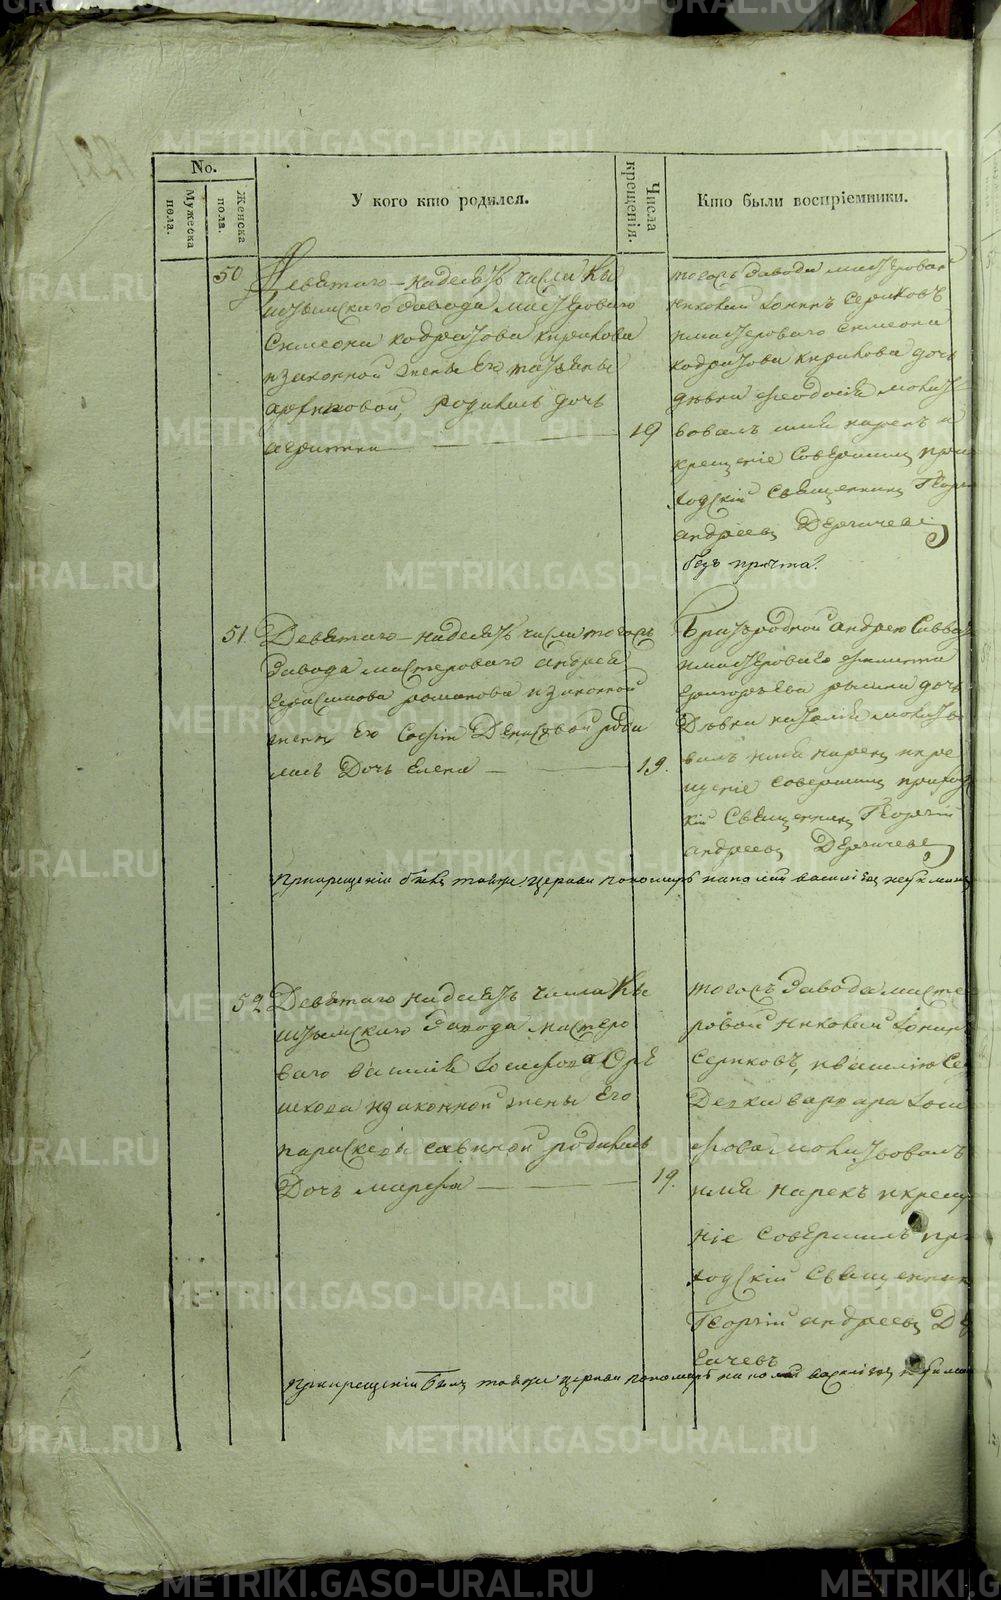 METRIKI.GASO-URAL.RU
No.
Мужеска пола.
Женска пола.
У кого кто родился.
Числа крещенія.
Кто были воспріемники.
50
Девятаго-надесять числа Кы
штымскаго завода мастероваго
Симеона Кодратова Кирикова
и законной жены Его Татьяны
родилась дочь
Агрипина
19
тогоже завода мастеровой
Николай Іонинъ Сериковъ
имастероваго Симеона
Кодратова Кирикова дочь
дѣвка Феодосия молит
вовалъ имя нарекъ и
крещеніе Совершилъ при
ходскій Священникъ Георгій
Андреевъ Деричевъ
безъ причта.
51.
Девятаго-надесять числа тогожъ
завода мастероваго Андрея
Герасимова Романова изаконной
жены Его Софіи Денисовой роди
лась Дочь Елена
19.
Андрею
имастероваго Филипа
Григорьева дочь
Дѣвка Наталия молитво
валъ имя нарекъ икре
щеніе совершилъ приход
кій Священникъ Георгій
Андреевъ Деричевъ
Прикрещеніи былъ тойже церкви пономарь Николай Василіевъ
52
Девятаго надесять числа Кы
штымскаго завода мастеро
ваго Василія Іосифова Орѣ
шкова изаконной жены Его
Параскевы Савиной родилась
Дочь Марфа
19.
тогожъ завода масте
ровой Николай Іонинъ
Сериковъ, иВасилію
Девка Варвара Іоси
фова молитвовалъ
имя нарекъ икреще
ніе Совершилъ при
ходскій Священникъ
Георгій Андреевъ Де
ричевъ
Прикрещеніи былъ тойже церкви пономарь Николай Василіевъ